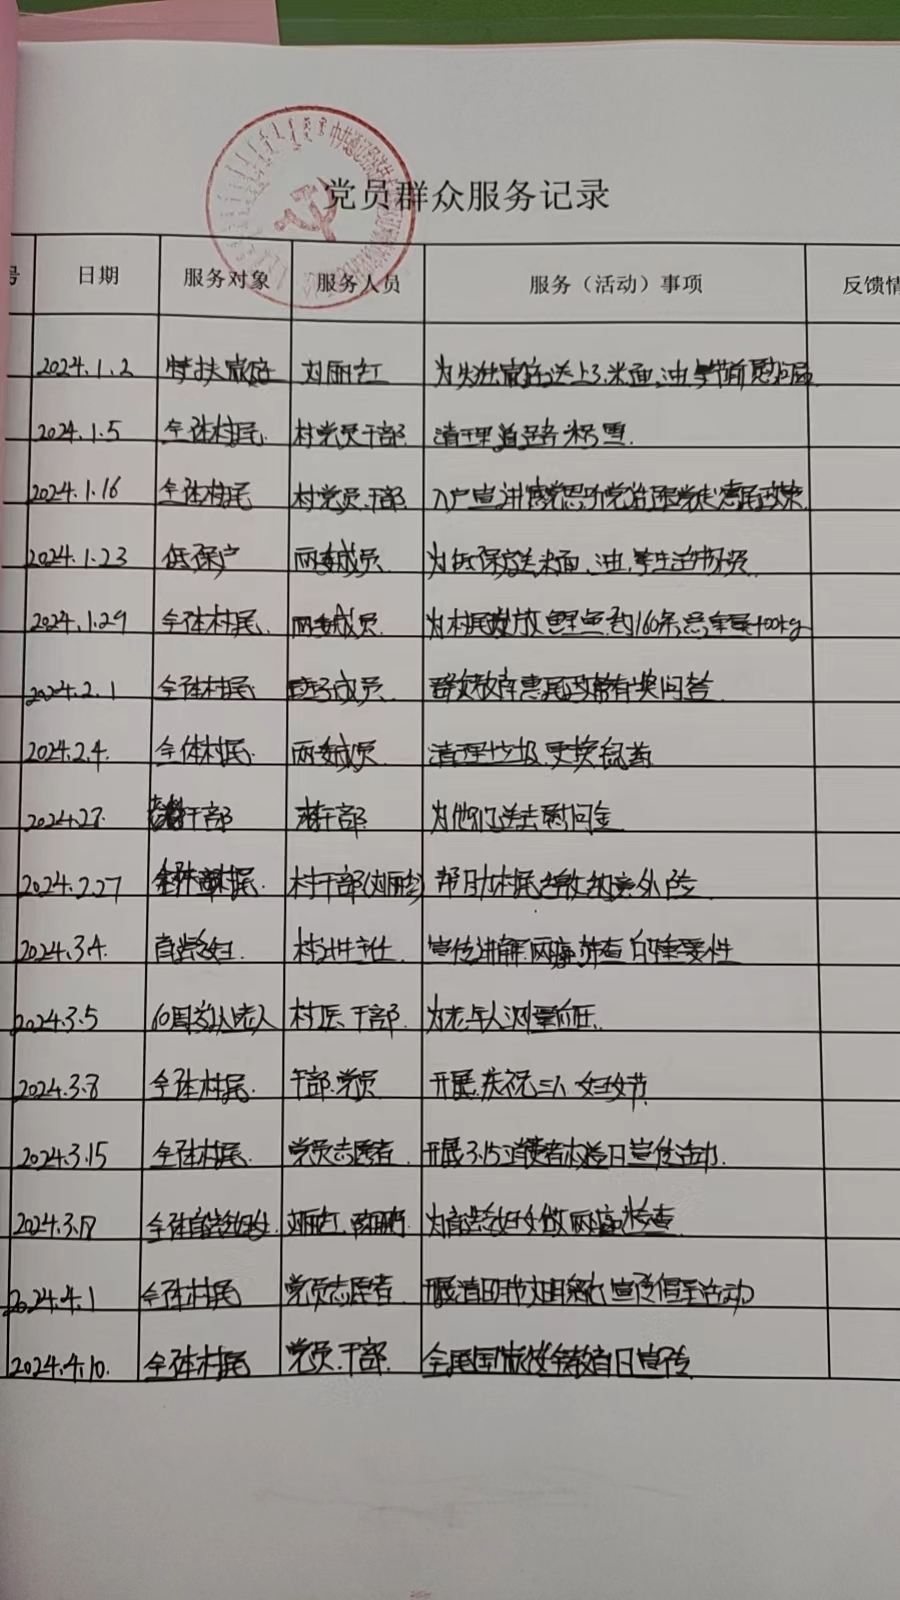 党员群众服务记录
号 日期 服务对象 服务人员 服务（活动）事项 反馈情
2024.1.2 特扶家庭 刘丽红 为失独家庭送上了米、面、油，节前慰问
2024.1.5 全体村民 村党员干部 清理道路积雪.
2024.1.16 全体村民 村党员.干部 入户宣讲感党恩听党话跟党走惠民政策.
2024.1.23 低保户 两委成员 为低保户送米面、油，等生活物资
2024.1.29 全体村民. 两委成员. 为村民发放鲤鱼约160条,总重量400kg
2024.2.1 全体村民 班子成员. 群众政府惠民政策有奖问答
2024.2.4. 全体村民. 两委成员 清理垃圾.更换
2024.2.7. 干部 干部 为他们送去慰问金
2024.2.27 村民. 村干部(刘丽红) 帮助村民缴纳意外险
2024.3.4. 育龄妇女. 村计生主任. 宣传讲解两癌筛查的重要性
2024.3.5 60周岁以上老人 村医、干部. 为老年人测量血压.
2024.3.8 全体村民. 干部.党员 开展.庆祝三八妇女节
2024.3.15 全体村民. 党员志愿者. 开展3.15消费者权益日宣传活动.
2024.3.18 全体育龄妇女. 刘丽红. 为育龄妇女做两癌检查
2024.4.1 全体村民 党员志愿者. 开展清明节文明祭祀宣传倡导活动
2024.4.10. 全体村民 党员.干部. 全民国家安全教育日宣传